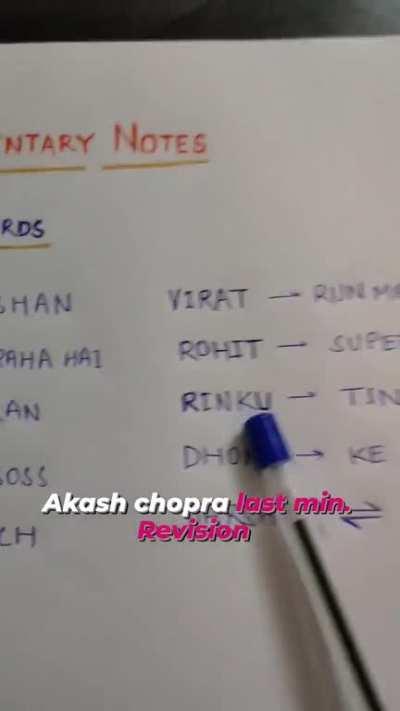 NTARY NOTES
RDS
SHAN VIRAT → RUN MA
RAHA HAI ROHIT → SUPE
AN RINKU → TIN
OSS → KE
CH ⇌
Akash chopra last min.
Revision